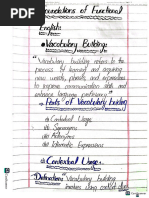 Foundations of Functional
English:
• Vocabulary Building:
"Vocabulary building refers to the
process of learning and acquiring
new words, phrases and expressions
to improve communication skills and
enhance language proficiency."
→ Parts of Vocabulary building
Contextual Usage
Synonyms
Antonyms
Idiomatic Expressions
Contextual Usage:
Definition: "Vocabulary building
involves using context clues